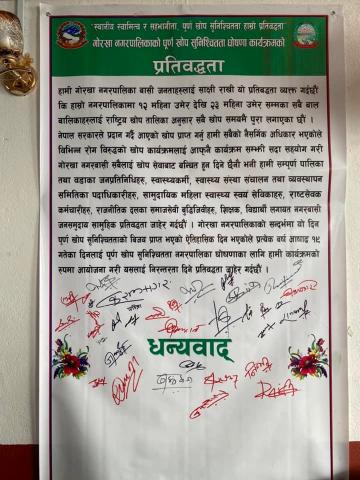 "स्थानीय स्वामित्व र सहभागीता, पूर्ण खोप सुनिश्चितता हाम्रो प्रतिवद्धता"
गोरखा नगरपालिकाको पूर्ण खोप सुनिश्चितता घोषणा कार्यक्रमको
प्रतिवद्धता
हामी गोरखा नगरपालिका बासी जनताहरुलाई साक्षी राखी यो प्रतिवद्धता व्यक्त गर्दछौं
कि हाम्रो नगरपालिकामा १२ महिना उमेर देखि २३ महिना उमेर सम्मका सबै बाल
बालिकाहरुलाई राष्ट्रिय खोप तालिका अनुसार सबै खोप समयमै पुरा लगाएका छौं ।
नेपाल सरकारले प्रदान गर्दै आएको खोप प्राप्त गर्नु हामी सबैको नैसर्गिक अधिकार भएकोले
बिभिन्न रोग विरुद्धको खोप कार्यक्रमलाई आफ्नै कार्यक्रम सम्झी सदा सहयोग गरी
गोरखा नगरबासी सबैलाई खोप सेवाबाट बन्चित हुन दिने छैनौं भनी हामी सम्पूर्ण पालिका
तथा वडाका जनप्रतिनिधिहरु, स्वास्थ्यकर्मी, स्वास्थ्य संस्था संचालन तथा व्यवस्थापन
समितिका पदाधिकारीहरु, सामुदायिक महिला स्वास्थ्य स्वयं सेविकाहरु, राष्टसेवक
कर्मचारीहरु, राजनीतिक दलका समाजसेवी बुद्धिजिवीहरु, शिक्षक, विद्यार्थी लगायत नगरबासी
जनसमुदाय सामुहिक प्रतिवद्धता जाहेर गर्दछौं । गोरखा नगरपालिकाको सन्दर्भमा यो दिन
पूर्ण खोप सुनिश्चितताको बिजय प्राप्त भएको ऐतिहासिक दिन भएकोले प्रत्येक वर्ष आषाढ १९
गतेका दिनलाई पूर्ण खोप सुनिश्चितता नगरपालिका घोषणाका लागि हामी कार्यक्रमको
रुपमा आयोजना गरी यसलाई निरन्तरता दिने प्रतिवद्धता जाहेर गर्दछौं ।
धन्यवाद्